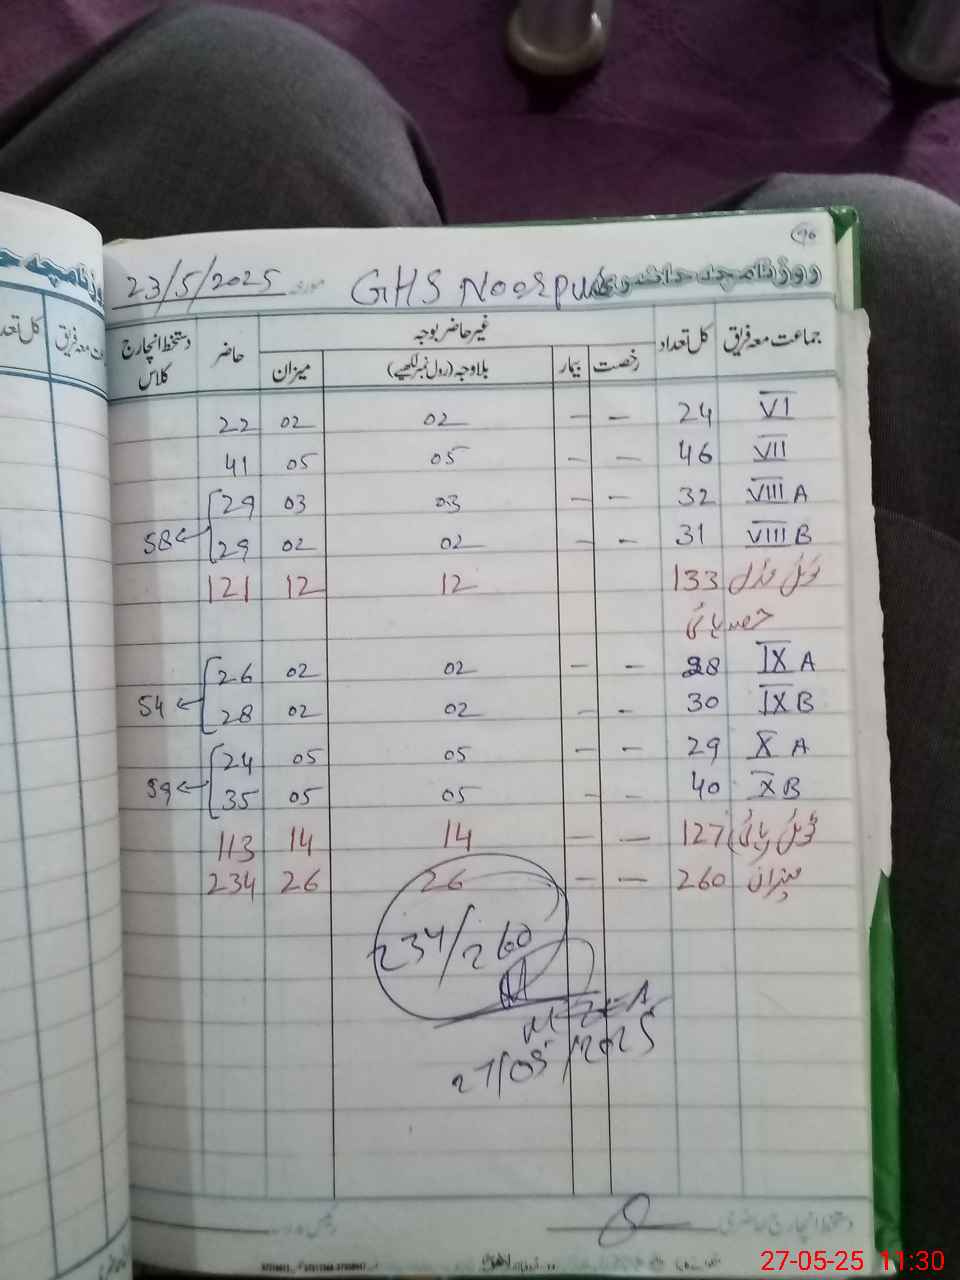 96
روزنامچہ حاضری GHS Noorpur مورخہ 23/5/2025
جماعت معہ فریق کل تعداد غیر حاضر بوجہ حاضر دستخط انچارج کلاس
رخصت بیمار بلاوجہ (رول نمبر لکھیے) میزان
VI 24 – – 02 02 22
VII 46 – – 05 05 41
VIII A 32 – – 03 03 29
VIII B 31 – – 02 02 29 58
ٹوٹل مڈل 133 12 12 121
حصہ ہائی
IX A 28 – – 02 02 26
IX B 30 – – 02 02 28 54
X A 29 – – 05 05 24
X B 40 – – 05 05 35 59
ٹوٹل ہائی 127 – – 14 14 113
میزان 260 – – 26 26 234
234/260
MEA
27/05/2025
دستخط انچارج حاضری
27-05-25 11:30